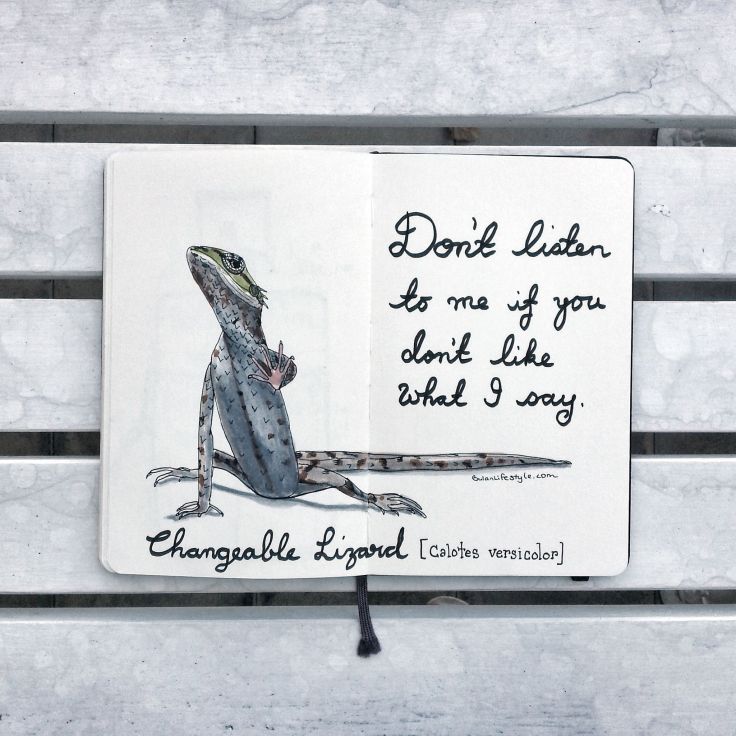 Don't listen
to me if you
don't like
what I say.
bulanlifestyle.com
Changeable Lizard [Calotes versicolor]